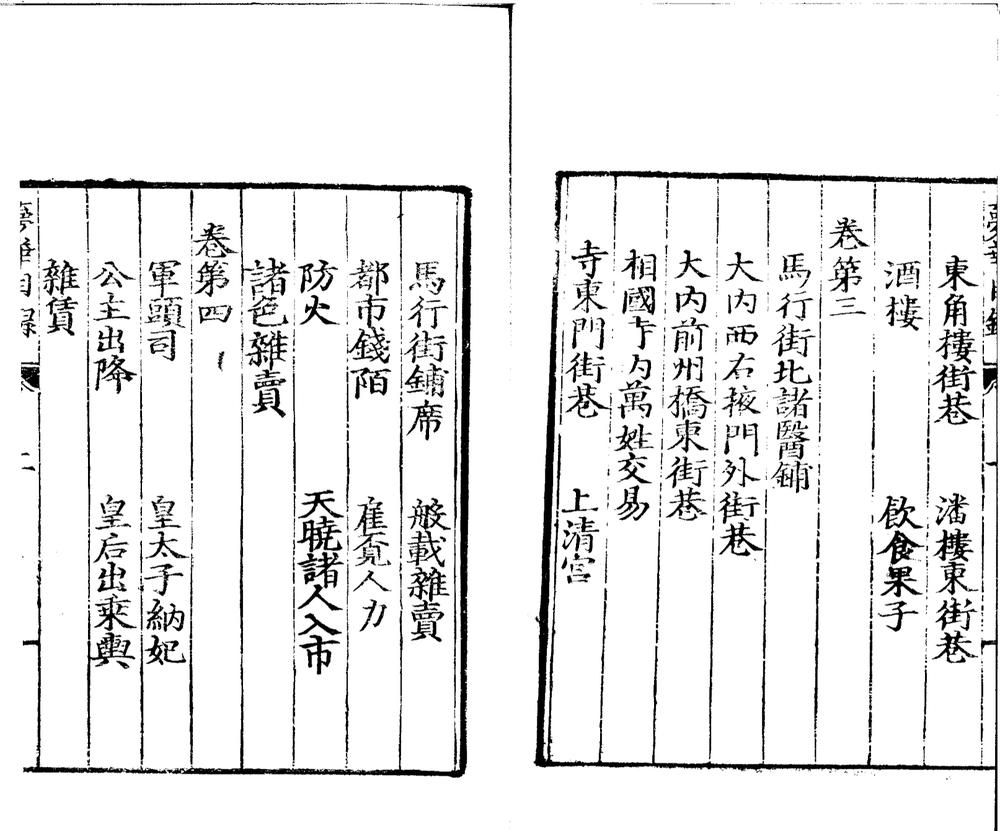 東角樓街巷　潘樓東街巷
酒樓　飲食果子
卷第三
馬行街北諸醫鋪
大內西右掖門外街巷
大內前州橋東街巷
相國寺內萬姓交易
寺東門街巷　上清宮
馬行街鋪席　般載雜賣
都市錢陌　雇覔人力
防火　天曉諸人入市
諸色雜賣
卷第四
軍頭司　皇太子納妃
公主出降　皇后出乘輿
雜賃